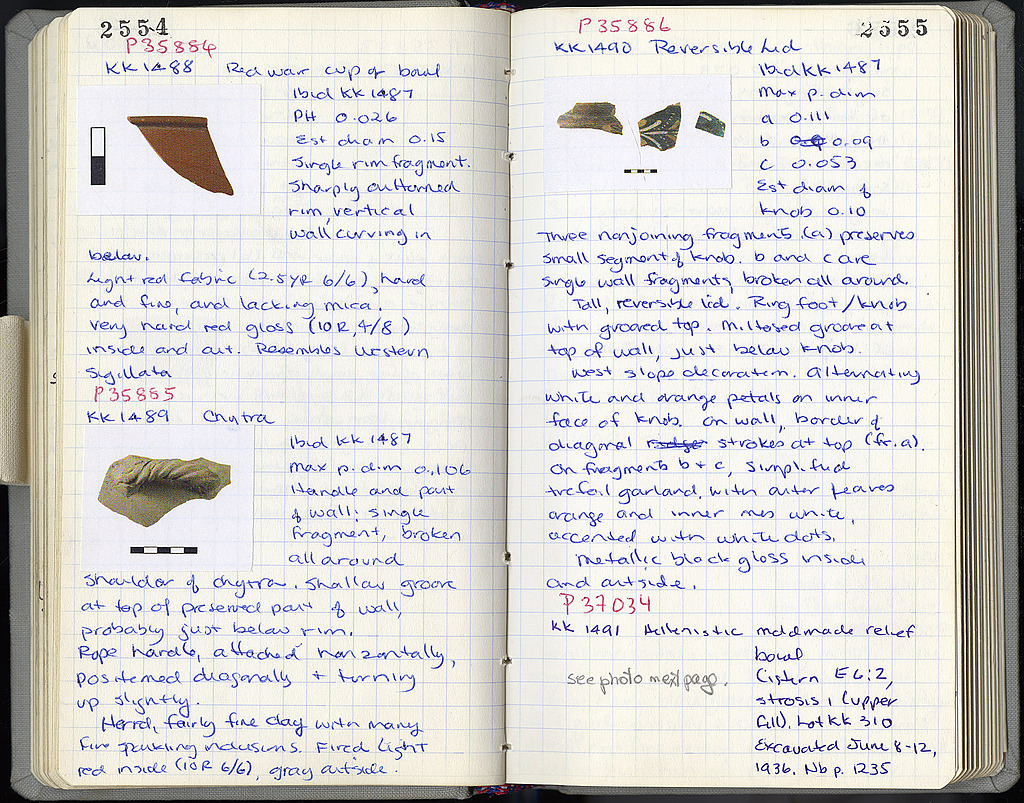 2554
P35884
KK 1488 Red ware cup or bowl
Ibid KK 1487
PH 0.026
Est diam 0.15
Single rim fragment.
Sharply outturned
rim, vertical
wall curving in
below.
Light red fabric (2.5YR 6/6), hard
and fine, and lacking mica.
Very hard red gloss (10R, 4/8)
inside and out. Resembles Western
Sigillata
P35885
KK 1489 Chytra
Ibid KK 1487
max p. dim 0.106
Handle and part
of wall; single
fragment, broken
all around
Shoulder of chytra. Shallow groove
at top of preserved part of wall,
probably just below rim.
Rope handle, attached horizontally,
positioned diagonally + turning
up slightly.
Hard, fairly fine clay with many
fine sparkling inclusions. Fired light
red inside (10R 6/6), gray outside.
2555
P35886
KK 1490 Reversible Lid
Ibid KK 1487
Max p. dim
a 0.111
b 0.09
c 0.053
Est diam of
knob 0.10
Three nonjoining fragments. (a) preserves
small segment of knob. b and c are
single wall fragments, broken all around.
Tall, reversible lid. Ring foot/knob
with grooved top. Miltosed groove at
top of wall, just below knob.
West slope decoration. Alternating
white and orange petals on inner
face of knob. On wall, border of
diagonal strokes at top (fr. a).
On fragments b + c, simplified
trefoil garland, with outer leaves
orange and inner ones white,
accented with white dots.
Metallic black gloss inside
and outside.
P37034
KK 1491 Hellenistic moldmade relief
bowl
see photo next page.
Cistern E6:2,
strosis 1 (upper
fill). Lot KK 310
Excavated June 8-12,
1936. Nb p. 1235